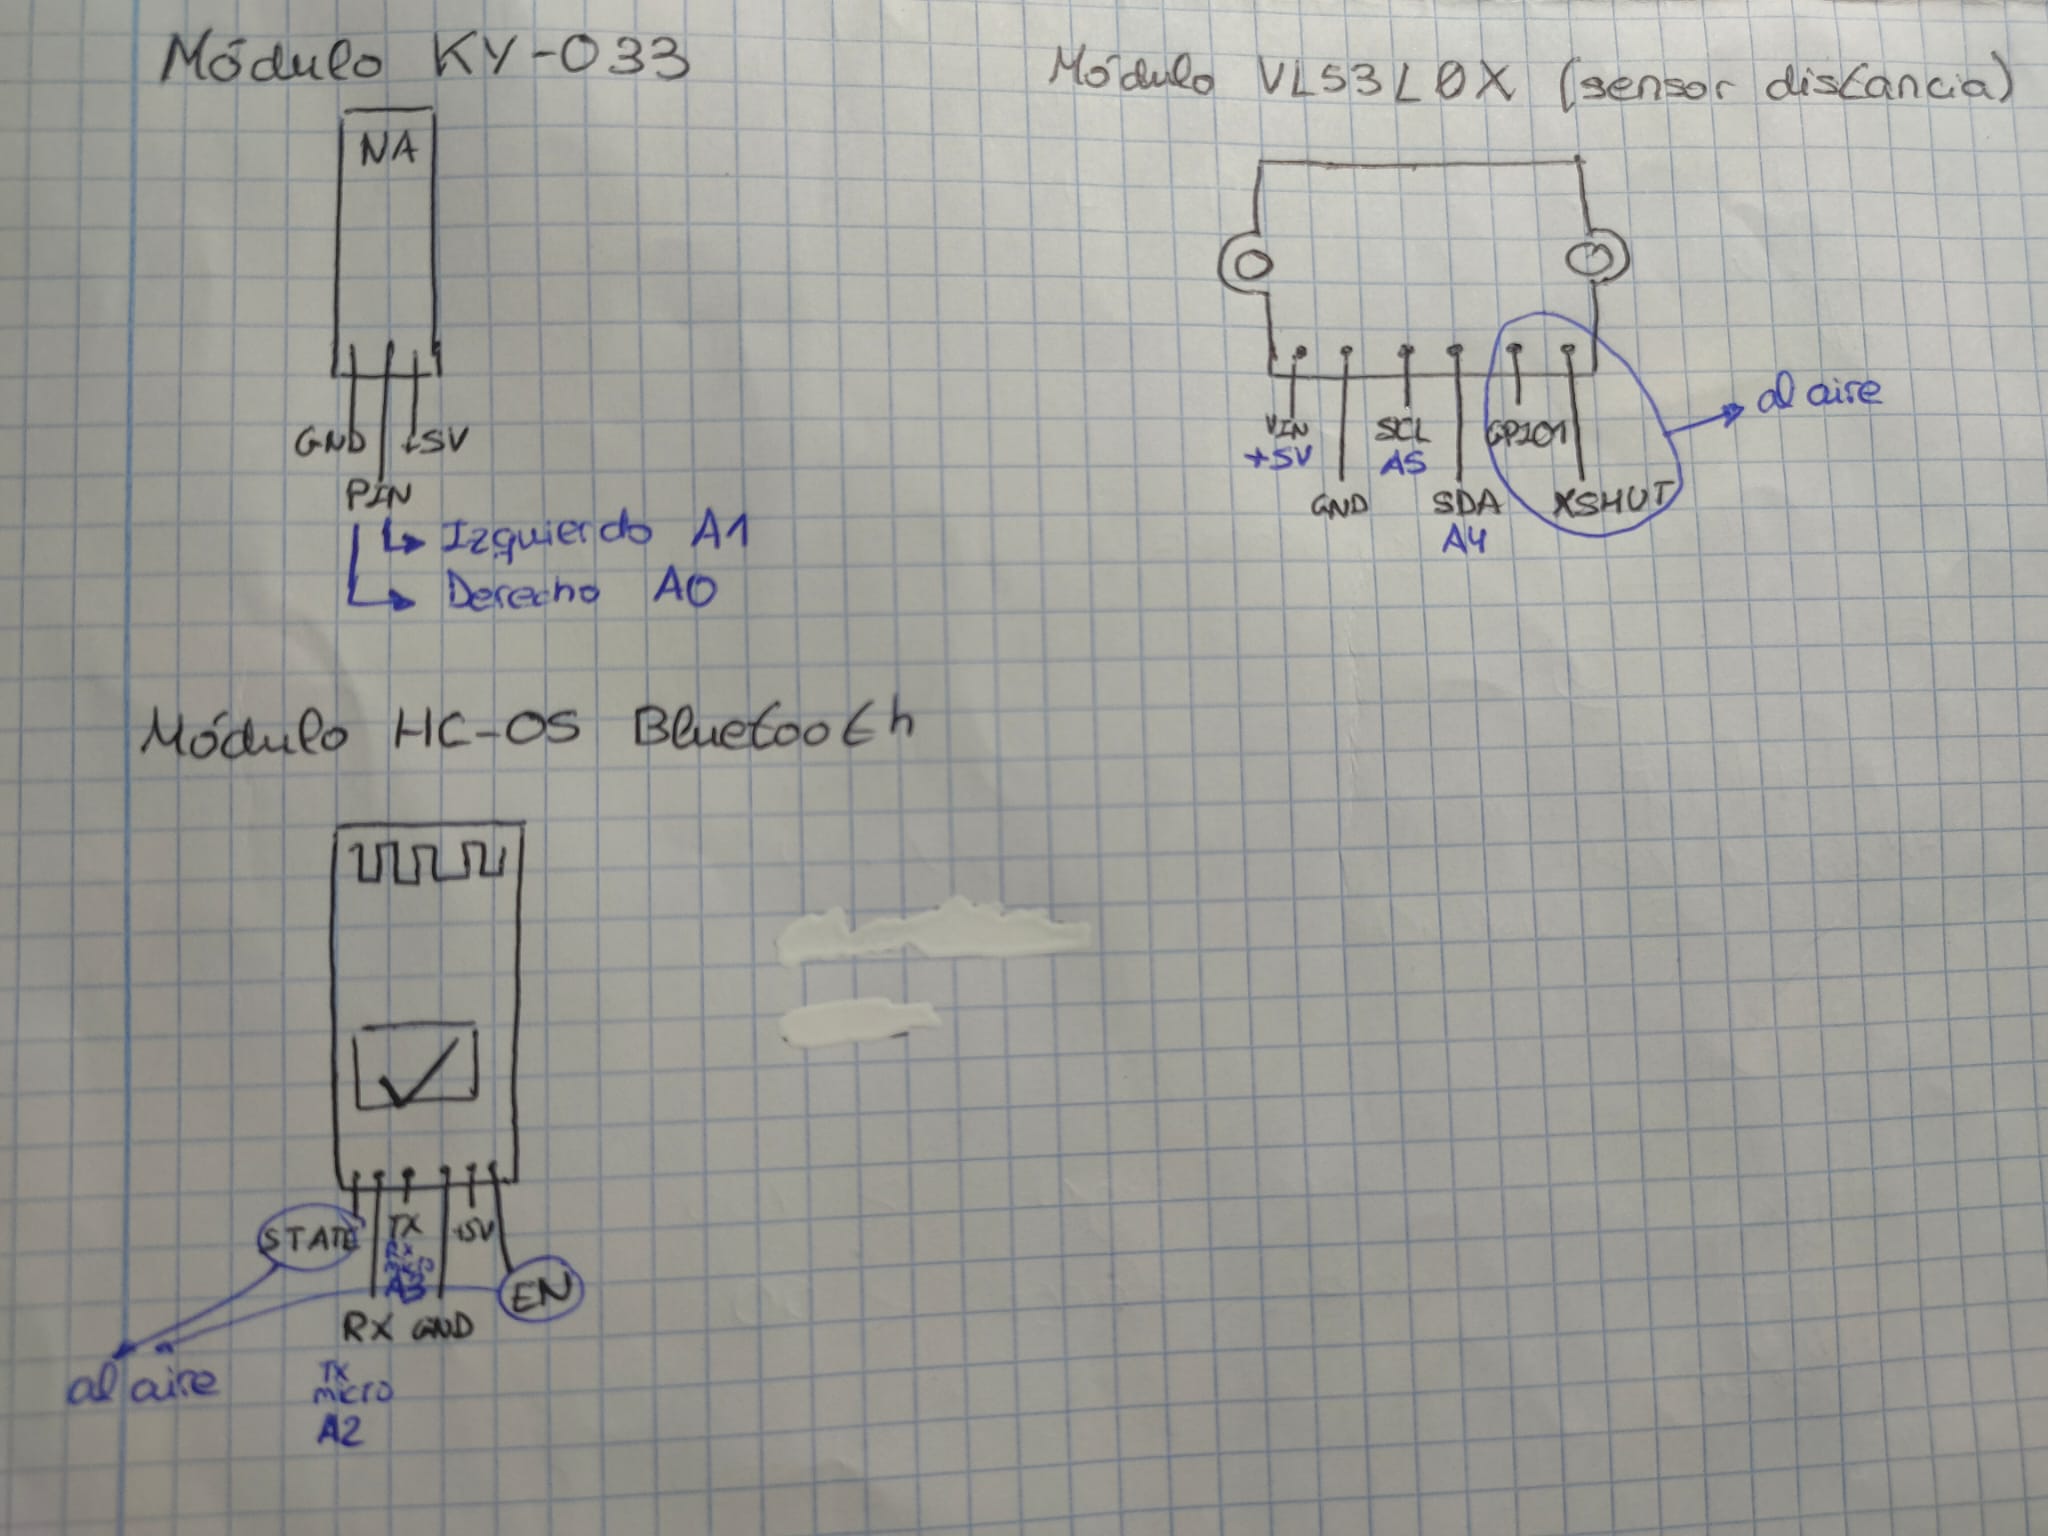 Módulo KY-033
NA
GND
+5V
PIN
Izquierdo A1
Derecho A0
Módulo VL53L0X (sensor distancia)
VIN
+5V
GND
SCL
A5
SDA
A4
GPIO1
XSHUT
al aire
Módulo HC-05 Bluetooth
STATE
TX
+5V
EN
RX GND
al aire
TX
micro
A2